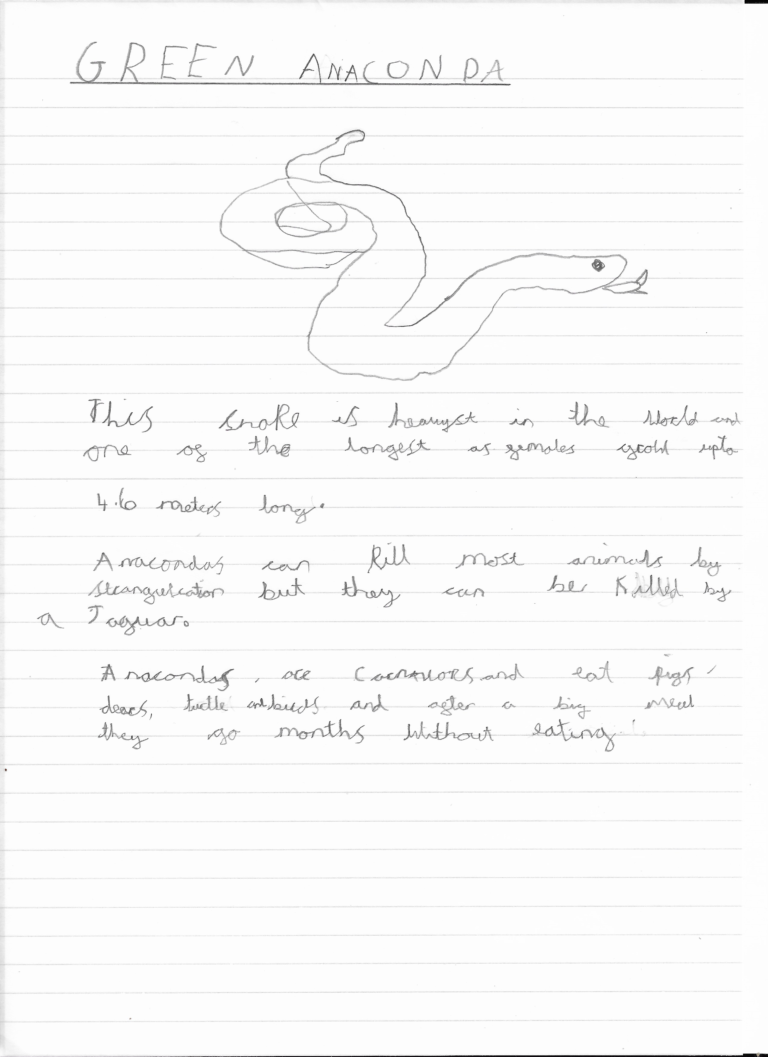 GREEN ANACONDA
This snake is heavyst in the World and
one of the longest as females grow upto
4.6 meters long.
Anacondas can Kill most animals by
strangulation but they can be Killed by
a Jaguar.
Anacondas, are Carnivors and eat pigs,
dears, turtle and birds and after a big meal
they go months without eating